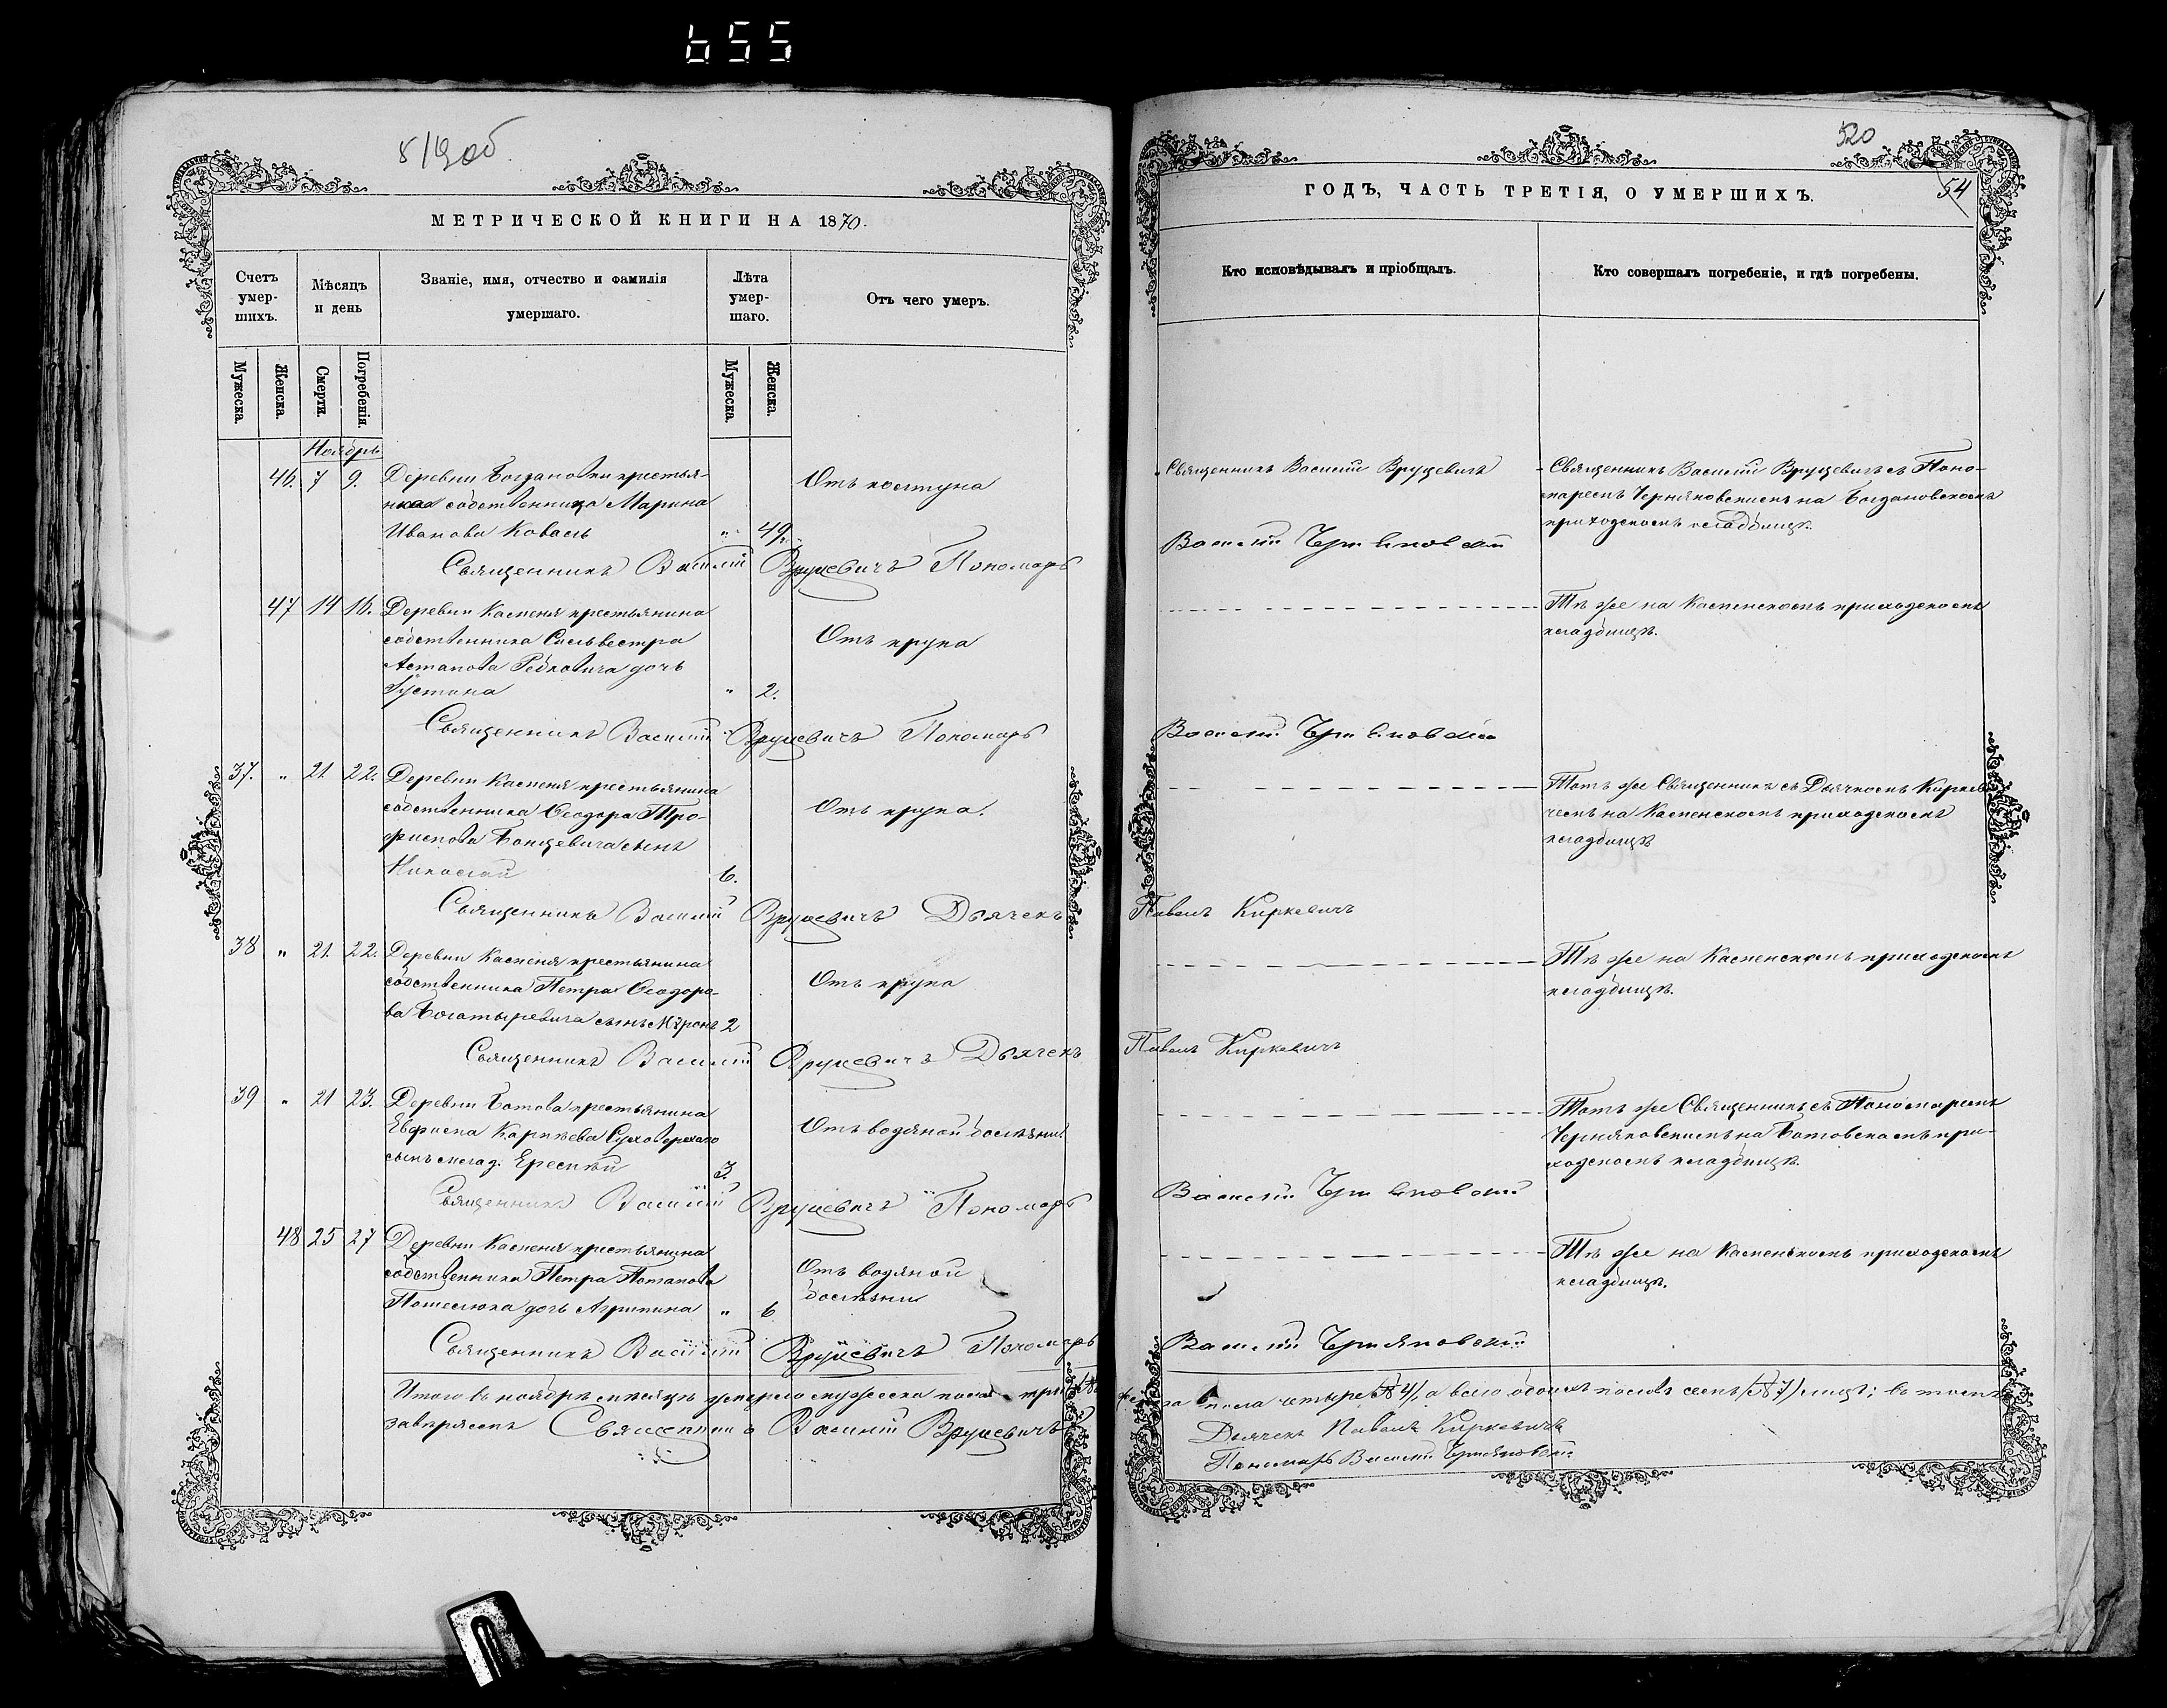 655
519об.
МЕТРИЧЕСКОЙ КНИГИ НА 1870.
Счетъ умер-шихъ.
Мѣсяцъ и день
Званіе, имя, отчество и фамилія умершаго.
Лѣта умер-шаго.
Отъ чего умеръ.
Мужеска.
Женска.
Смерти.
Погребенія.
Мужеска.
Женска.
Ноябрь
46. 7 9. Деревни Богдановки крестья-
нская собственница Марина
Иванова Коваль " 49.
Отъ коклуша
Священникъ Василій Вруцевичъ Пономарь
47 14 16. Деревни Каменя крестьянина
собственника Сильвестра
Астапова Редковича дочь
Іустина " 2.
Отъ крупа
Священникъ Василій Вруцевичъ Пономарь
37. " 21 22. Деревни Каменя крестьянина
собственника Ѳеодора Тро-
фимова Банцевича сынъ
Николай 6.
Отъ крупа.
Священникъ Василій Вруцевичъ Дьячекъ
38 " 21 22. Деревни Каменя крестьянина
собственника Петра Ѳеодоро-
ва Богатыревича сынъ Мѵронъ 2
Отъ крупа
Священникъ Василій Вруцевичъ Дьячекъ
39 " 21 23. Деревни Ботова крестьянина
Евфима Карпѣева Суховерхаго
сынъ млад. Еремѣй 3.
Отъ водяной болѣзни
Священникъ Василій Вруцевичъ Пономарь
48 25 27 Деревни Каменя крестьянина
собственника Петра Потапова
дочь Агрипина " 6
Отъ водяной
болѣзни
Священникъ Василій Вруцевичъ Пономарь
Итого въ ноябрѣ мѣсяцѣ умерло мужеска пола три
завѣряемъ Священникъ Василій Вруцевичъ
520
54
ГОДЪ, ЧАСТЬ ТРЕТІЯ, О УМЕРШИХЪ.
Кто исповѣдывалъ и пріобщалъ.
Кто совершалъ погребеніе, и гдѣ погребены.
Священникъ Василій Вруцевичъ
Священникъ Василій Вруцевичъ съ Поно-
маремъ Черняковскимъ на Богдановскомъ
приходскомъ кладбищѣ.
Василій Черняковскій
Тѣ же на Каменскомъ приходскомъ
кладбищѣ.
Василій Черняковскій
Тотъ же Священникъ съ Дьячкомъ Киркеви
чемъ на Каменскомъ приходскомъ
кладбищѣ
Павелъ Киркевичъ
Тѣ же на Каменскомъ приходскомъ
кладбищѣ.
Павелъ Киркевичъ
Тотъ же Священникъ съ Пономаремъ
Черняковскимъ на Ботовскомъ при-
ходскомъ кладбищѣ.
Василій Черняковскій
Тѣ же на Каменскомъ приходскомъ
кладбищѣ.
Василій Черняковскій
пола четыре (№ 4), а всего обоихъ половъ семь (№ 7) лицъ; въ томъ
Дьячекъ Павелъ Киркевичъ
Пономарь Василій Черняковскій